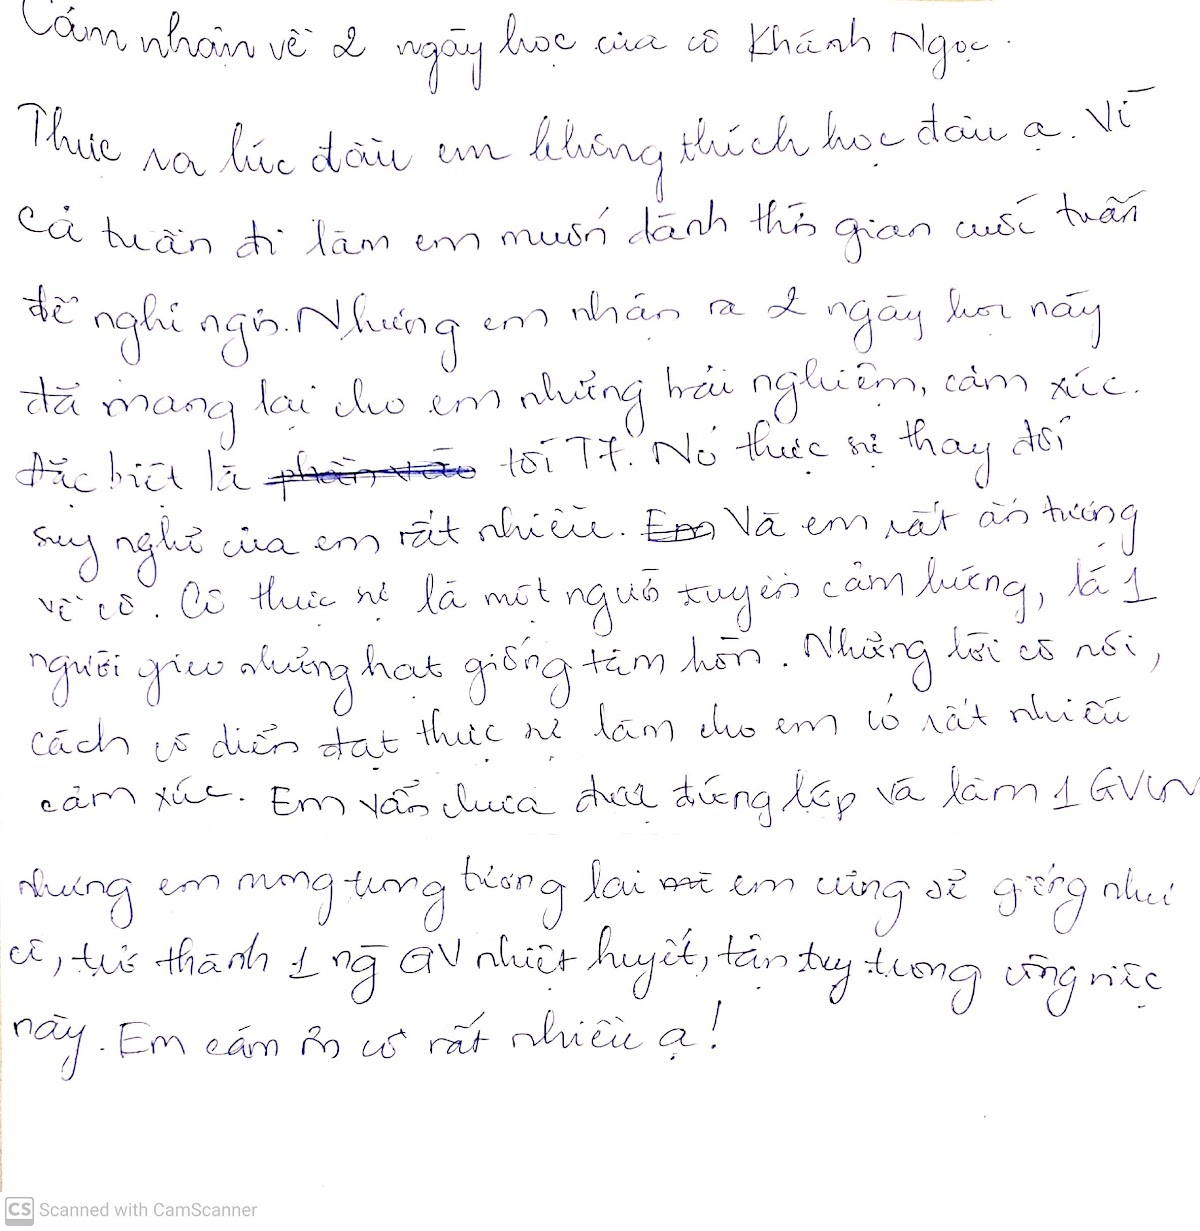 Cảm nhận về 2 ngày học của cô Khánh Ngọc.
Thực ra lúc đầu em không thích học đâu ạ. Vì
cả tuần đi làm em muốn dành thời gian cuối tuần
để nghỉ ngơi. Nhưng em nhận ra 2 ngày học này
đã mang lại cho em những trải nghiệm, cảm xúc.
Đặc biệt là tối T7. Nó thực sự thay đổi
suy nghĩ của em rất nhiều. Và em rất ấn tượng
về cô. Cô thực sự là một người truyền cảm hứng, là 1
người gieo những hạt giống tâm hồn. Những lời cô nói,
cách cô diễn đạt thực sự làm cho em có rất nhiều
cảm xúc. Em vẫn chưa được đứng lớp và làm 1 GVCN
nhưng em mong trong tương lai em cũng sẽ giống như
cô, trở thành 1 ng GV nhiệt huyết, tận tụy trong công việc
này. Em cảm ơn cô rất nhiều ạ!
CS Scanned with CamScanner